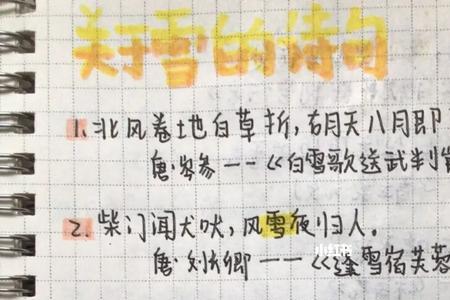 关于雪的诗句
1.北风卷地白草折,胡天八月即
唐·岑参——《白雪歌送武判官
2.柴门闻犬吠,风雪夜归人。
唐·刘长卿——《逢雪宿芙蓉
小红书